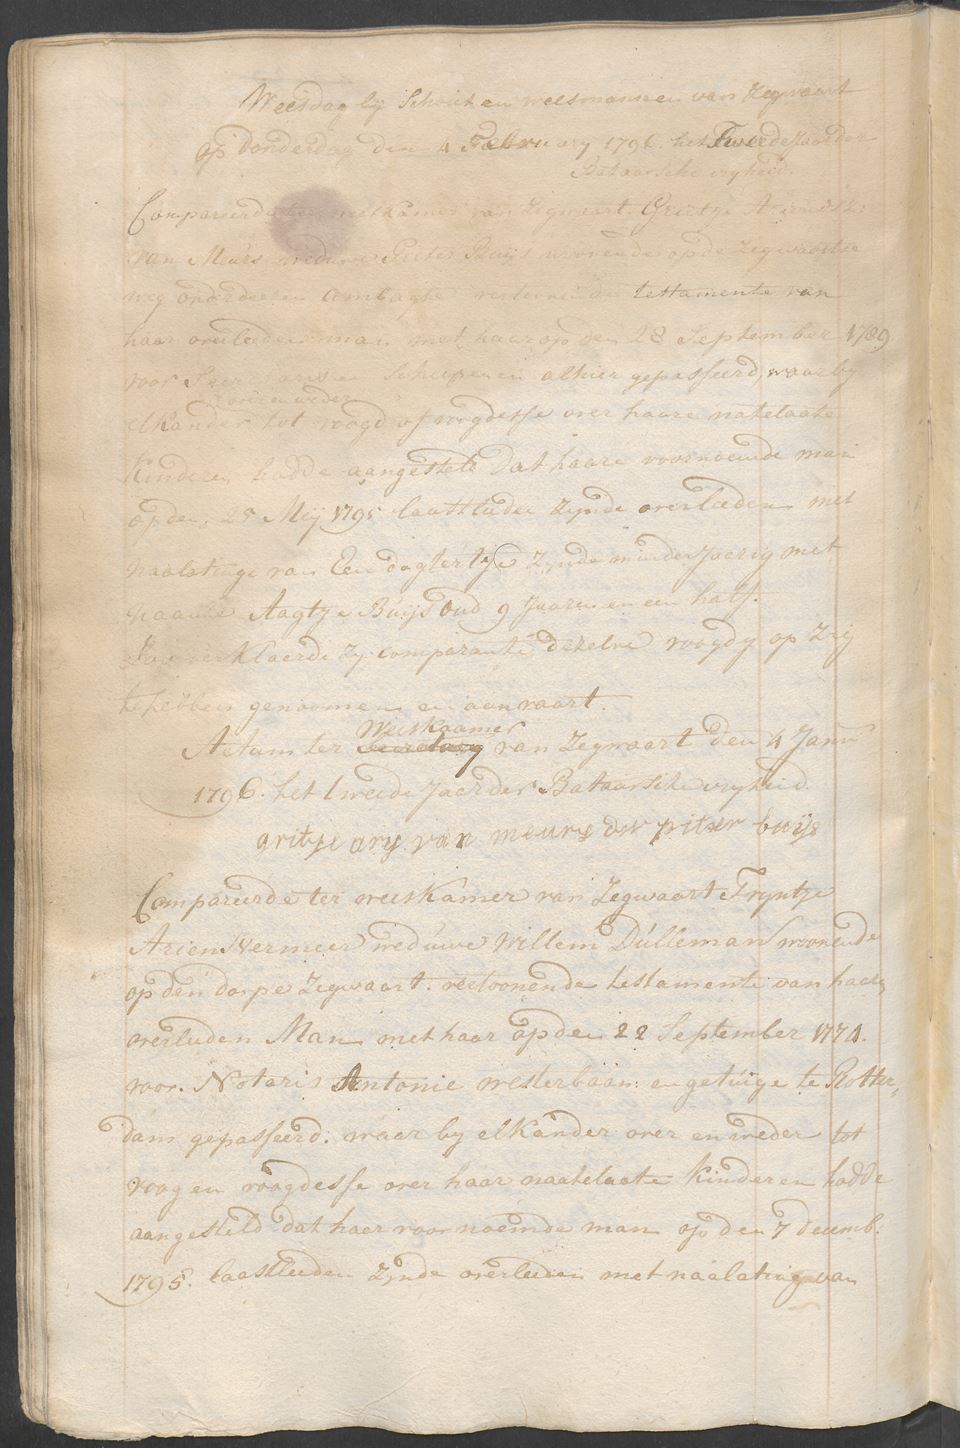 Weesdag bij Schout en weesmannen van Zegwaart
op donderdag den 4 February 1796. het Tweede Jaar der
Bataafsche vryheid.
Compareerde ter weeskamer van Zegwaart. Grietje Ariens
van Meurs weduwe Pieter Buijs woonende op de Zegwaartse
weg onder deesen ambagte vertoonende testamente van
haar overleeden man met haar op den 28 September 1789
voor Secretaris en Schepenen alhier gepasseerd, waar by
over en weder
elkander tot voogd of voogdesse over haare natelaate
kinderen hadde aangestelt dat haare voornoemde man
op den 25 Meij 1795 laatstleeden zynde overleeden met
naalatinge van Een dogtertje zynde minderjaerig met
naame Aagtje Buijs oud 9 Jaaren en een half.
Zoo verklaerde zy comparante dezelve voogdy op Zig
te hebben genoomen en aanvaart.
Weeskaamer
Actum ter Secretary van Zegwaart den 4 Janu
1796. het tweede Jaer der Bataafsche vryheid.
gritje arys van meurs wed pieter buijs
Compareerde ter weeskamer van Zegwaart Tryntje
Ariens Vermeer weduwe Willem Dulleman woonende
op den dorpe Zegwaart. vertoonende testamente van haar
overleeden Man met haar op den 22 September 1774.
voor Notaris Antonie Westerbaan: en getuige te Rotter„
dam gepasseerd: waar by elkander over en weder tot
voog en voogdesse over haar naatelaate kinderen hadde
aangesteld dat haar voornoemde man op den 7 decemb:
1795. laastleeden zynde overleeden met naalating van